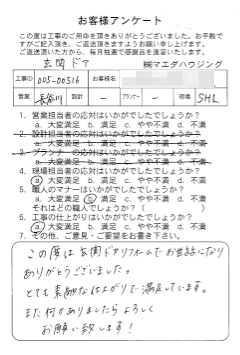 お客様アンケート
この度は工事のご用命を頂きありがとうございます。お手数で
すがご記入頂き、ご返送頂きますようお願い申し上げます。
ご返送頂いた方から、毎月抽選で感謝品を進呈いたします。
玄関ドア ㈱マエダハウジング
工事ID 005-00516 お客様名
営業 長谷川 設計 プランナー － 現場 SHL
1. 営業担当者の応対はいかがでしたでしょうか？
a. 大変満足 b. 満足 c. やや不満 d. 不満
2. 設計担当者の応対はいかがでしたでしょうか？
a. 大変満足 b. 満足 c. やや不満 d. 不満
3. プランナーの応対はいかがでしたでしょうか？
a. 大変満足 b. 満足 c. やや不満 d. 不満
4. 現場担当者の応対はいかがでしたでしょうか？
a. 大変満足 b. 満足 c. やや不満 d. 不満
5. 職人のマナーはいかがでしたでしょうか？
a. 大変満足 b. 満足 c. やや不満 d. 不満
それはどの職人でしょうか？（ ）
6. 工事の仕上がりはいかがでしたでしょうか？
a. 大変満足 b. 満足 c. やや不満 d. 不満
7. その他、ご意見・ご要望をお書き下さい。
この度は玄関ドアリフォームでお世話になり
ありがとうございました。
とても素敵な仕上がりで満足しています。
また何かありましたらよろしく
お願い致します！